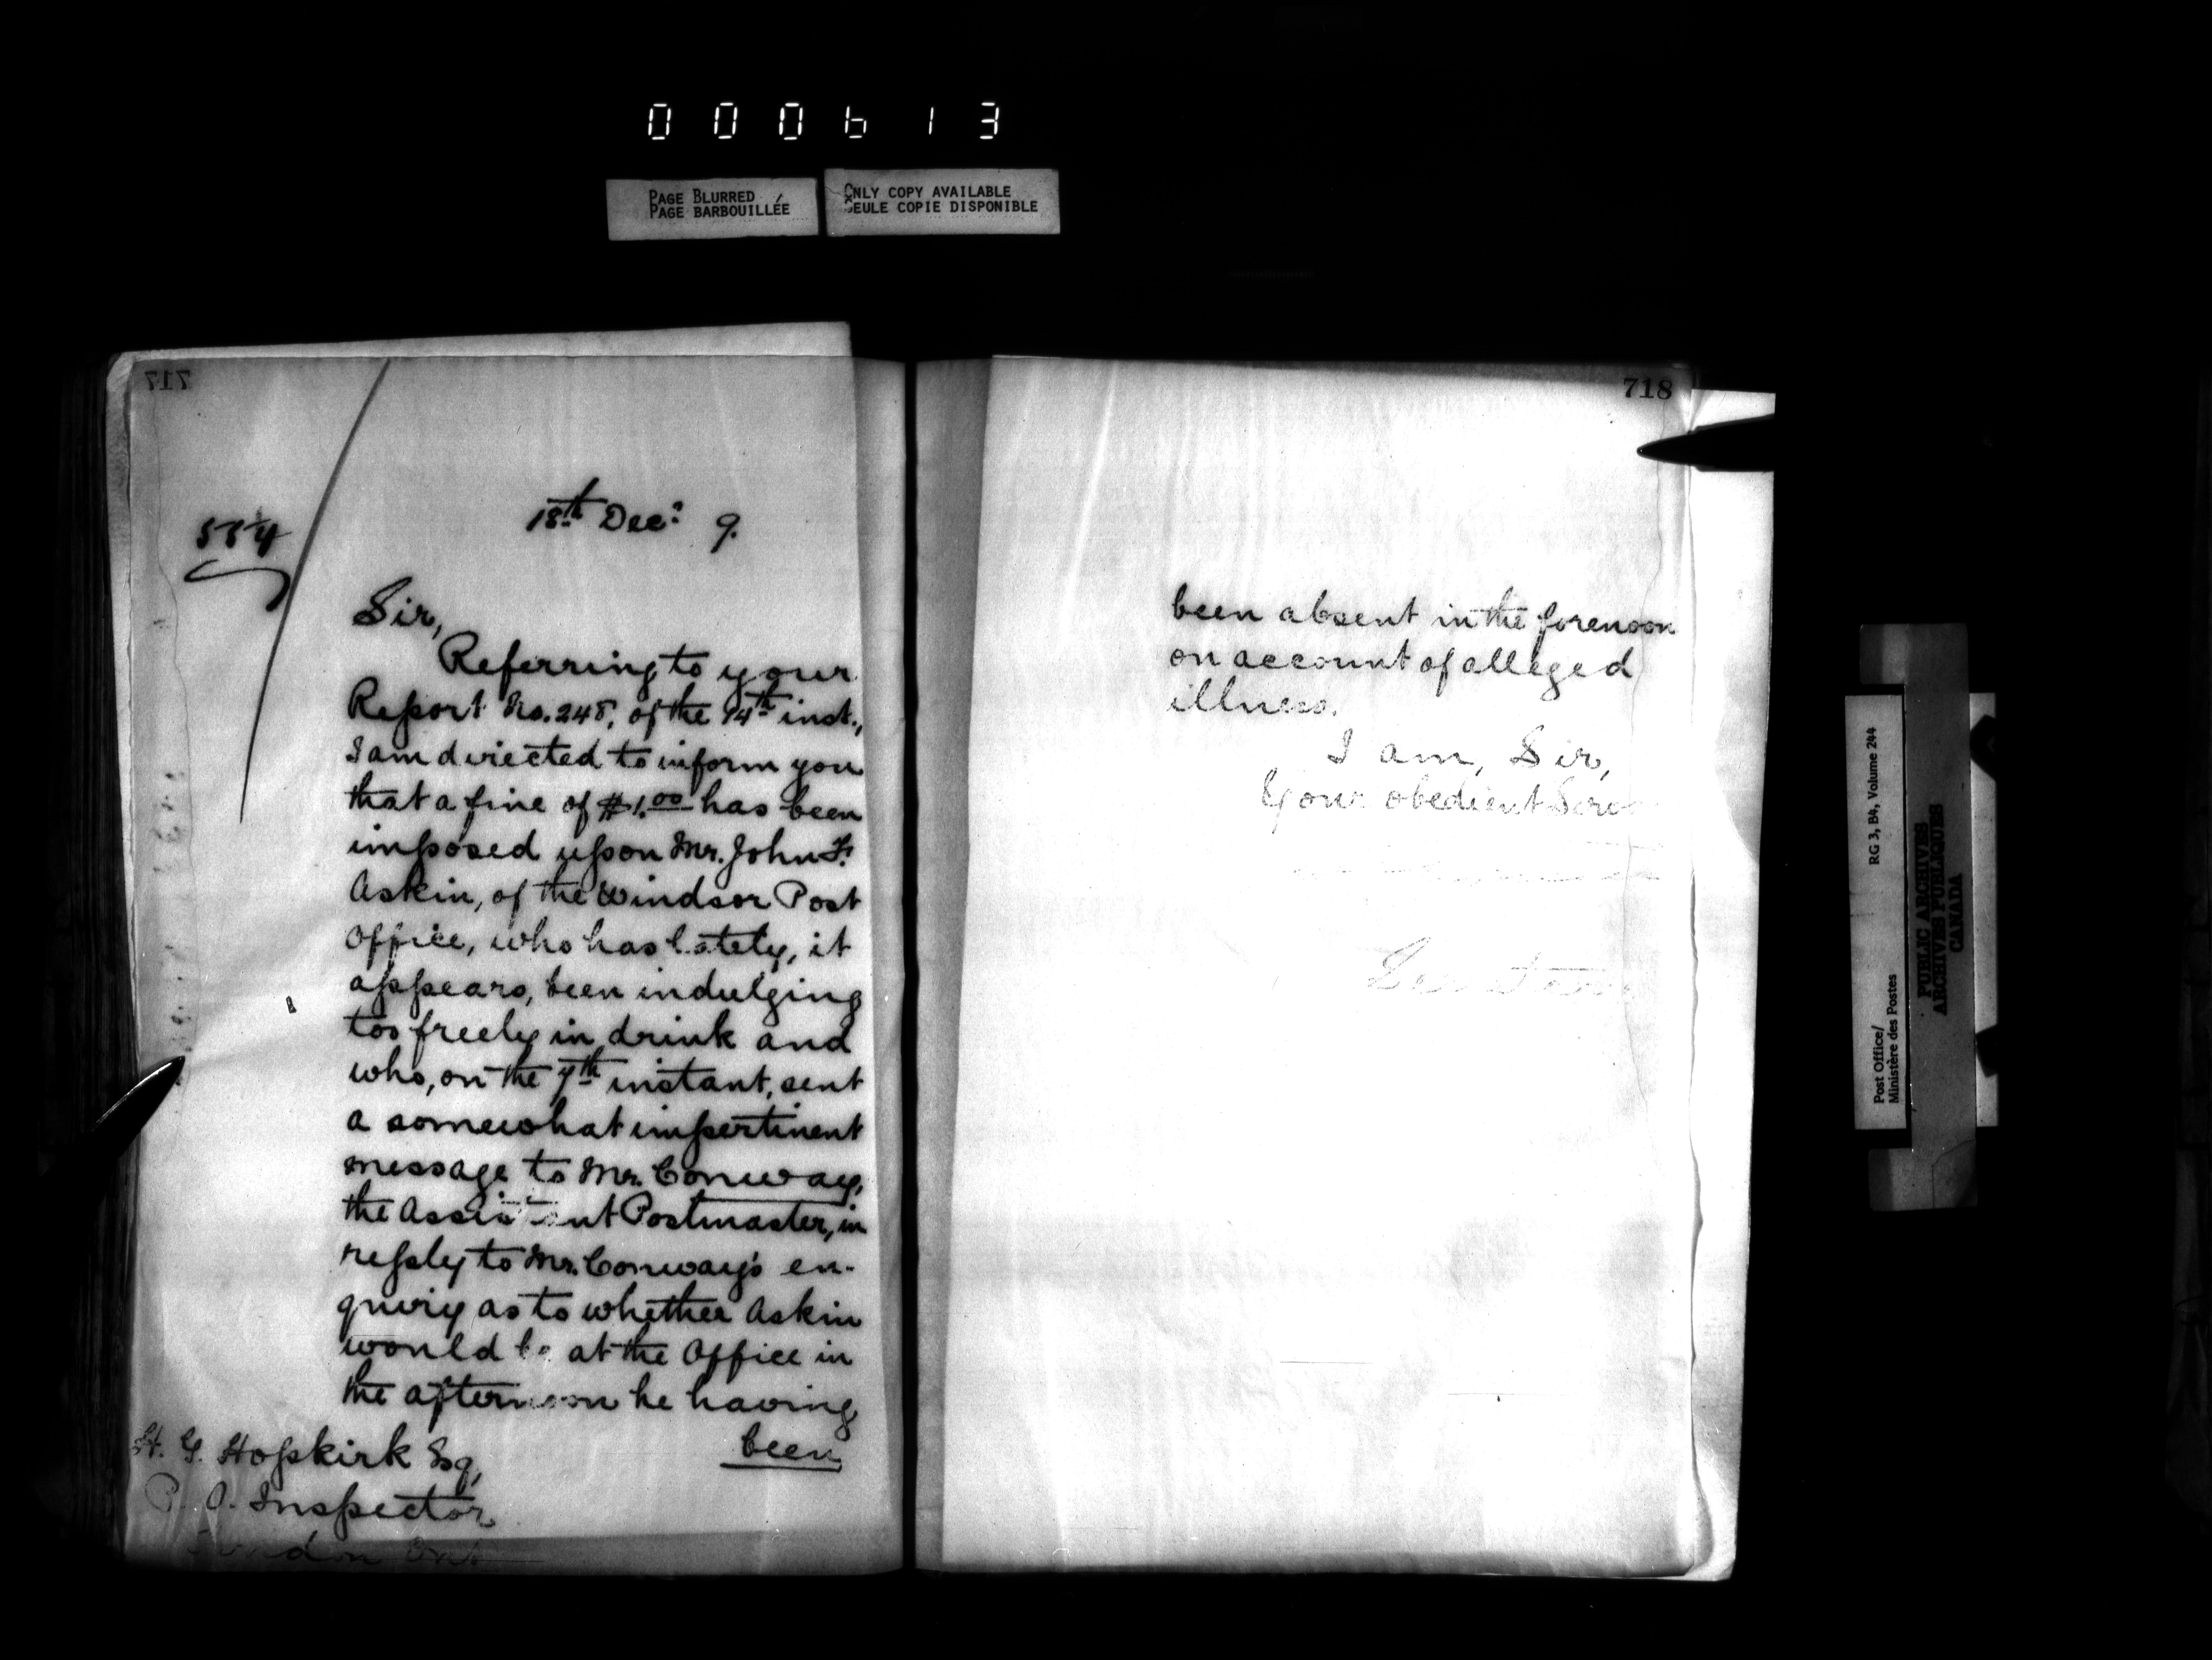 000613
PAGE BLURRED
PAGE BARBOUILLÉE
ONLY COPY AVAILABLE
SEULE COPIE DISPONIBLE
717
18th Dec: 9.
554
Sir,
Referring to your
Report No. 248, of the 14th inst.,
I am directed to inform you
that a fine of $1.00 has been
imposed upon Mr. John F.
Askin, of the Windsor Post
Office, who has lately, it
appears, been indulging
too freely in drink and
who, on the 7th instant, sent
a somewhat impertinent
message to Mr. Conway,
the Assistant Postmaster, in
reply to Mr. Conway's en-
quiry as to whether Askin
would be at the Office in
the afternoon he having
been
H. G. Hopkirk Esq,
P. O. Inspector
London Ont
718
been absent in the forenoon
on account of alleged
illness.
I am, Sir,
Your obedient Serv
Secretary
RG 3, B4, Volume 244
Post Office/
Ministère des Postes
PUBLIC ARCHIVES
ARCHIVES PUBLIQUES
CANADA